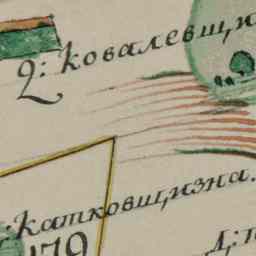 2: Ковалевщи
Катковщизна.
179
Д: